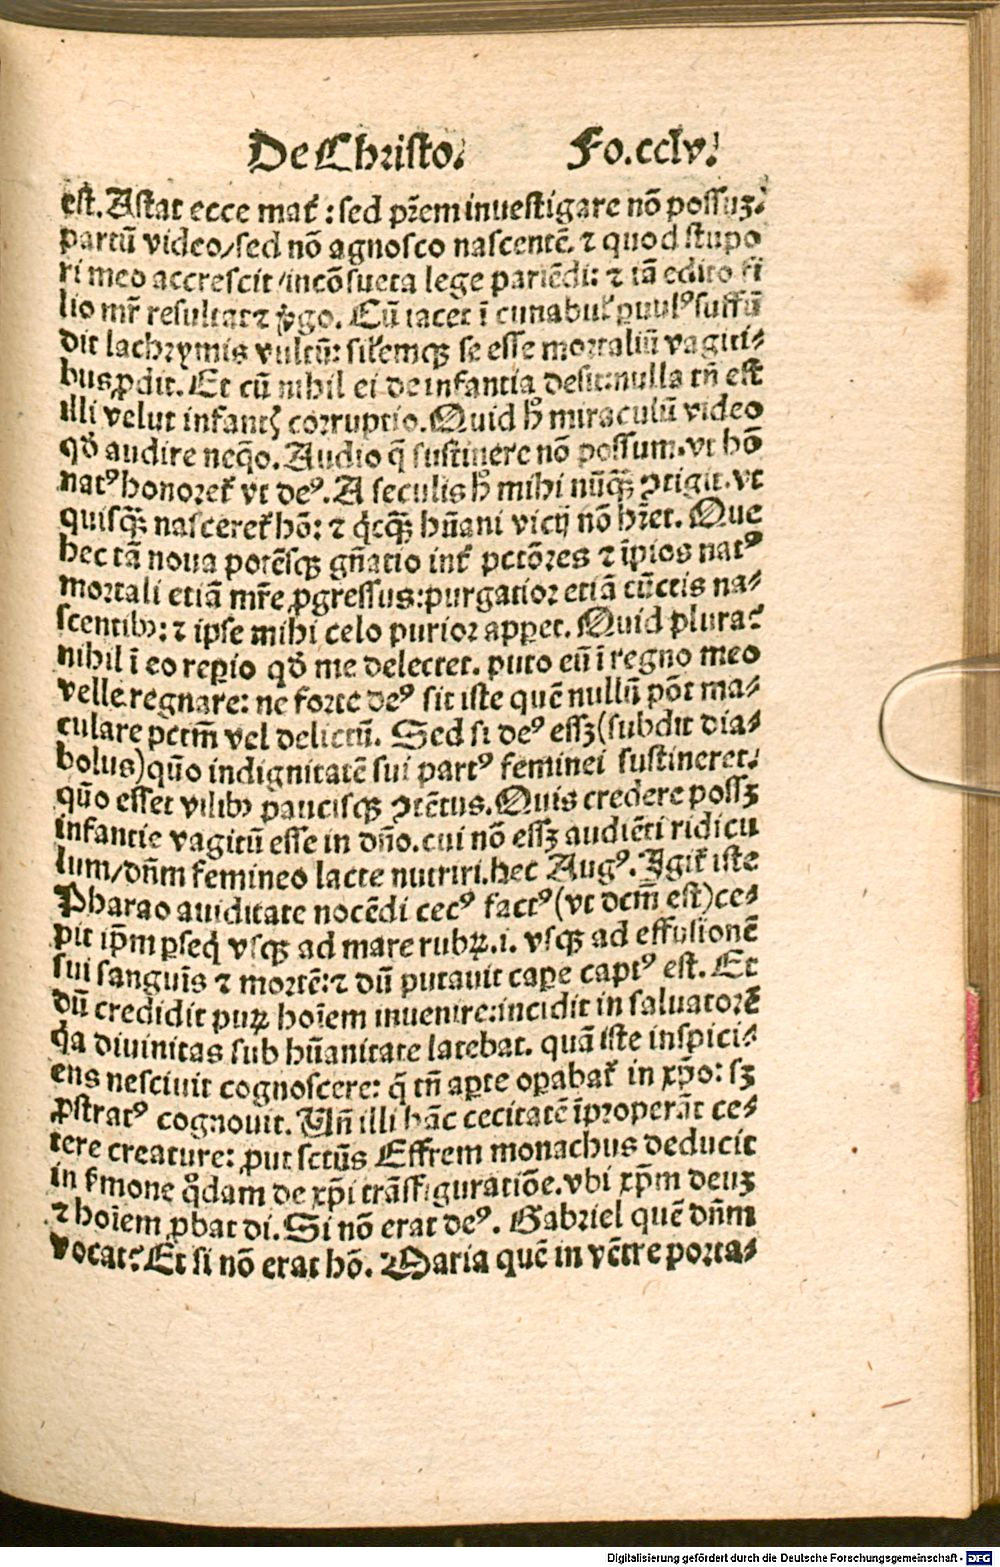 De Christo. Fo.cclv.
est. Astat ecce mat̄ : sed pr̄em inuestigare nō possuꝫ:
partū video/sed nō agnosco nascentē. ⁊ quod stupo
ri meo accrescit/incōsueta lege pariēdi: ⁊ iā edito fi
lio mr̄ resultat ⁊ v̓go. Cū iacet ī cunabul̓ puulꝰ suffū
dit lachrymis vultū: sil̓emqꝫ se esse mortaliū vagiti⸗
bus ꝓdit. Et cū nihil ei de infantia desit: nulla tn̄ est
illi velut infantꝭ corruptio. Quid h̓ miraculū video
qd̓ audire neq̄o. Audio q̄ sustinere nō possum. vt hō
natꝰ honoret̓ vt deꝰ. A seculis h̓ mihi nūqꝫ ꝯtigit. vt
quisqꝫ nasceret̓ hō: ⁊ q̓cqꝫ hūani vicij nō hr̄et. Que
hec tā noua potēsqꝫ gn̄atio int̓ pctōres ⁊ īpios natꝰ
mortali etiā mr̄e ꝓgressus: purgatior etiā cūctis na⸗
scentibꝰ: ⁊ ipse mihi celo purior apꝑet. Quid plura?
nihil ī eo reꝑio qd̓ me delectet. puto eū ī regno meo
velle regnare: ne forte deꝰ sit iste quē nullū pōt ma⸗
culare pctm̄ vel delictū. Sed si deꝰ essꝫ (subdit dia⸗
bolus) quō indignitatē sui partꝰ feminei sustineret:
quō esset vilibꝰ paucisqꝫ ꝯtētus. Quis credere possꝫ
infantie vagitū esse in dn̄o. cui nō essꝫ audiēti ridicu
lum/dn̄m femineo lacte nutriri. hec Augꝰ. Igit̓ iste
Pharao auiditate nocēdi cecꝰ factꝰ (vt dcm̄ est) ce⸗
pit ip̄m ꝑseq̓ vsqꝫ ad mare rubꝝ. i. vsqꝫ ad effusionē
sui sanguīs ⁊ mortē: ⁊ dū putauit caꝑe captꝰ est. Et
dū credidit puꝝ hoīem inuenire: incidit in saluatorē
q̓a diuinitas sub hūanitate latebat. quā iste inspici⸗
ens nesciuit cognoscere: q̄ tn̄ aꝑte oꝑabat̓ in xp̄o: sꝫ
ꝓstratꝰ cognouit. Vn̄ illi hāc cecitatē īproperāt ce⸗
tere creature: ꝓut sctūs Effrem monachus deducit
in s̓mone q̊dam de xp̄i trāsfiguratiōe. vbi xp̄m deuꝫ
⁊ hoīem ꝓbat di. Si nō erat deꝰ. Gabriel quē dn̄m
vocat? Et si nō erat hō. Maria quē in vētre porta⸗
Digitalisierung gefördert durch die Deutsche Forschungsgemeinschaft - DFG